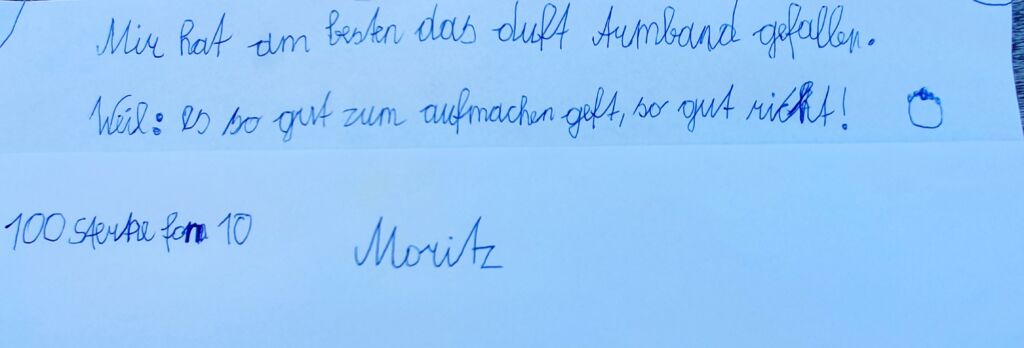 Mir hat am besten das duft Armband gefallen.
Weil: es so gut zum aufmachen geft, so gut richt!
100 Sterne fon 10
Moritz